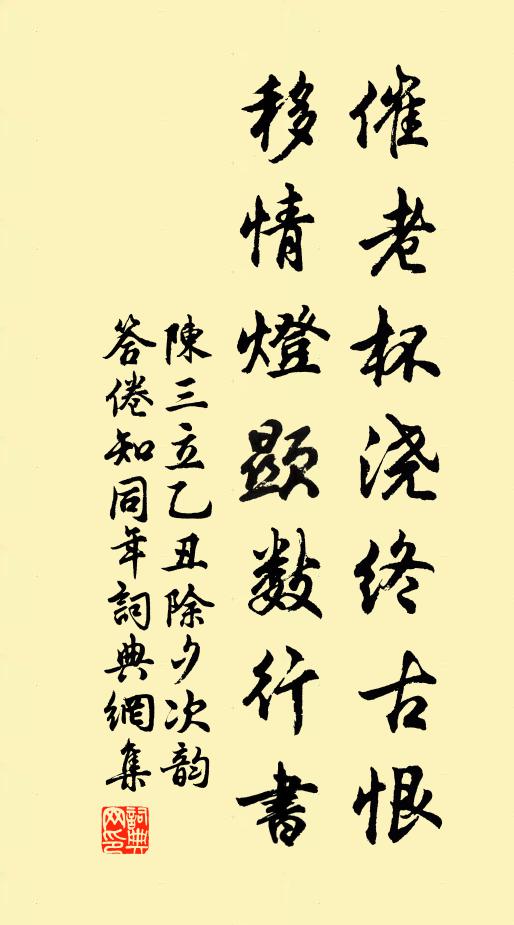 催老杯浇终古恨
移情燈顯数行書
陳三立乙丑除夕次韵
答倦知同年詞典網集
詞典
网印